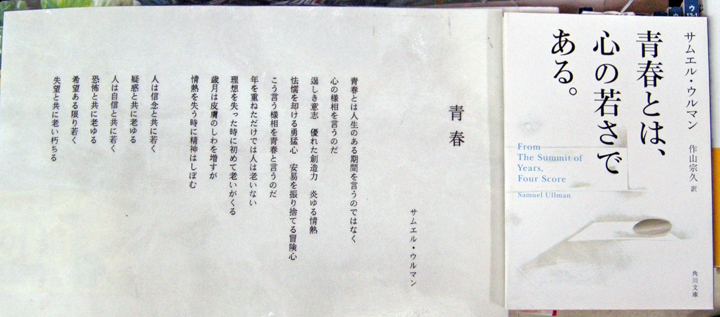 青春
サムエル・ウルマン
青春とは人生のある期間を言うのではなく
心の様相を言うのだ
逞しき意志 優れた創造力 炎ゆる情熱
怯懦を却ける勇猛心 安易を振り捨てる冒険心
こう言う様相を青春と言うのだ
年を重ねただけでは人は老いない
理想を失った時に初めて老いがくる
歳月は皮膚のしわを増すが
情熱を失う時に精神はしぼむ
人は信念と共に若く
疑惑と共に老ゆる
人は自信と共に若く
恐怖と共に老ゆる
希望ある限り若く
失望と共に老い朽ちる
サムエル・ウルマン
作山宗久 訳
青春とは、
心の若さで
ある。
From
The Summit of
Years,
Four Score
Samuel Ullman
角川文庫